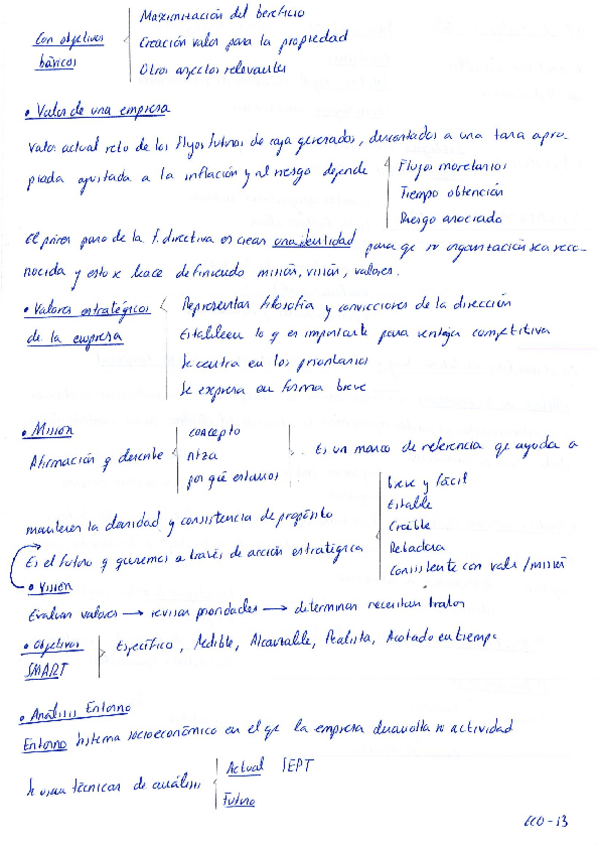 Con objetivos básicos
Maximización del beneficio
Creación valor para la propiedad
Otros aspectos relevantes
• Valor de una empresa
Valor actual neto de los flujos futuros de caja generados, descontados a una tasa apro-
piada ajustada a la inflación y al riesgo depende
Flujos monetarios
Tiempo obtención
Riesgo asociado
El primer paso de la f. directiva es crear una identidad para que su organización sea reco-
nocida y esto se hace definiendo misión, visión, valores.
• Valores estratégicos
de la empresa
Representar filosofía y convicciones de la dirección
Establecen lo q es importante para ventaja competitiva
Se centra en los prioritarios
Se expresa en forma breve
• Misión
Afirmación q describe
concepto
ntza
por qué estamos
Es un marco de referencia que ayuda a
mantener la claridad y consistencia de propósito
Es el futuro q queremos a través de acción estratégica
breve y fácil
Estable
Creíble
Retadora
Consistente con valor/misión
• Visión
Evaluar valores → revisar prioridades → determinar necesitan
• Objetivos
SMART
Específico, Medible, Alcanzable, Realista, Acotado en tiempo
• Análisis Entorno
Entorno sistema socioeconómico en el que la empresa desarrolla su actividad
Se usan técnicas de análisis
Actual SEPT
Futuro
ECO-13